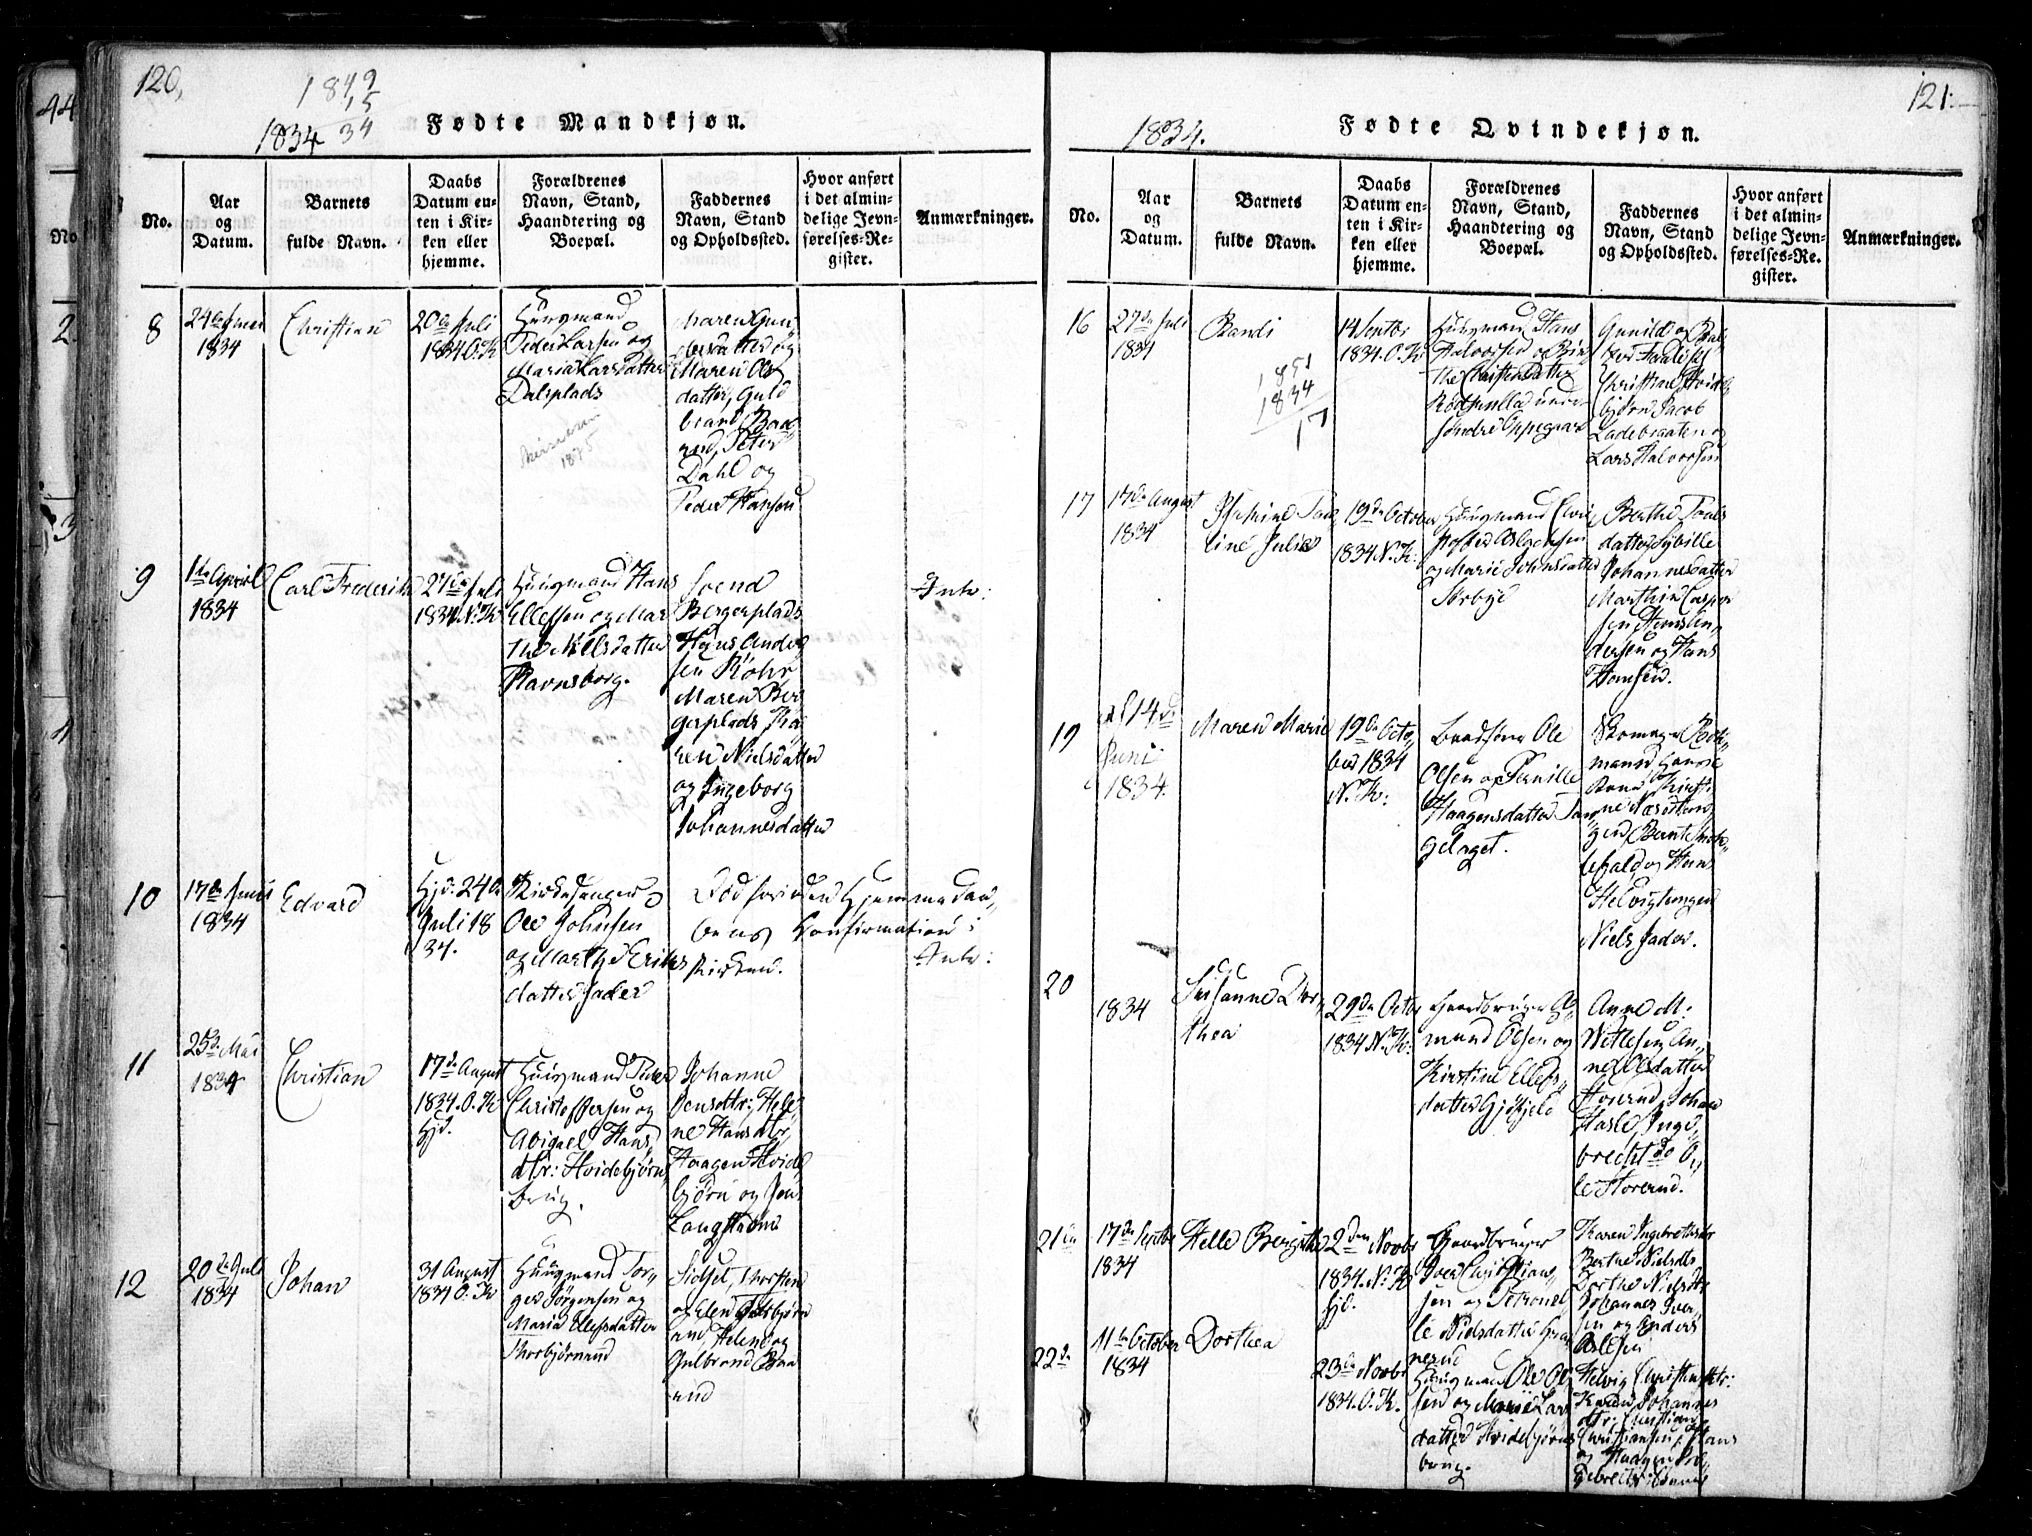 120,
1849
15
34
1834
Fødte Mandkjøn.
No.
Aar
og
Datum.
Barnets
fulde Navn.
Daabs
Datum en-
ten i Kir-
ken eller
hjemme.
Forældrenes
Navn, Stand,
Haandtering og
Boepæl.
Faddernes
Navn, Stand
og Opholdssted.
Hvor anført
i det almin-
delige Jevn-
førelses-Re-
gister.
Anmærkninger.
8
1834
Christian
20de Juli
1834 O.K
Huusmand
Peder Larsen og
Maria Larsdatter
Dalsplads
1875
Maren Gun-
dersdatter og
Maren Ols
datter, Guld
brand
Peter
Dahl og
Peder Hansen
9
1te April
1834
Carl Frederik
27de Juli
1834 N.K
Huusmand Hans
Ellefsen og Mar
the Nilsdatter
Ravnsborg.
Svend
Bergerplads
Hans Ander
sen Röhr
Maren Ber
gerplads Ka
ren Nielsdatter
og Ingeborg
Johannesdatter
Intr:
10
17de Juni
1834
Edvard
Hjd. 24de
Juli 18
34.
Kirkesanger
Ole Johnsen
og Marthe Eriks
datter Jader
Död forinden Hjemmedaa-
bens Confirmation i
Kirken.
Intr:
11
25de Mai
1834
Christian
17de August
1834. O.K
Hjd.
Huusmand Peder
Christoffersen og
Abigael Hans
dtr: Hvidebjørn
brug.
Johanne
Jensdtr; Hele
ne Hansdtr,
Haagen Hvide
bjørn og Jens
Langstadne
12
20de Juli
1834
Johan
31 August
1834 O.K
Huusmand Tor-
ger Jørgensen og
Maria Ellefsdatter
Thorbjørnrud
Sidsel, Thorsten
og Elen Thorbjørn
rud, Helene og
Gulbrand Baa
rud
121.
1834.
Fødte Qvindekjøn.
No.
Aar
og
Datum.
Barnets
fulde Navn.
Daabs
Datum en-
ten i Kir-
ken eller
hjemme.
Forældrenes
Navn, Stand,
Haandtering og
Boepæl.
Faddernes
Navn, Stand
og Opholdssted.
Hvor anført
i det almin-
delige Jevn-
førelses-Re-
gister.
Anmærkninger.
16
27de Juli
1834
Randi
1851
1834
17
14 Septbr
1834. O.K.
Huusmand Hans
Halvorsen og Bir-
the Christensdatter
under
søndre Oppegaard
Gunild og
Christine Hvide
bjørn Jacob
Ladebraaten og
Lars Halvorsen
17
17de August
1834
line Julie
19de October
1834 N.K.
Huusmand Chri
stoffer Aslaksen
og Marie Johnsdatter
Sørbye
Berthe Pauls
datter Sybille
Johannesdatter
Marthin Casper
sen
dersen og Hans
Hansen.
19
14de
Juni
1834.
Maren Marie
19de Octo-
ber 1834
N.K:
Ole
Olsen og Pernille
Haagensdatter Tan
gelaget.
Skomager
Kirsti
ne
gen Bernt
og Hans
Helvigtangen
Niels Jader.
20
1834
Susanne Dor-
thea
29de Octbr
1834 N.K:
Gaardbruger A-
mund Olsen og
Kirstine Ellefs-
datter Gjøfjeld
Anne M:
Nitlesen An-
ne Olsdatter
Storerud Johan
Hasle Inge-
brecht do O-
le Storerud.
21de
17de Septbr
1834
Helle Bergithe
2den Novbr
1834. N.K
hjd.
Gaardbruger
Iver Christian-
sen og Petronel-
le Nielsdatter Gran
nerud
Karen Ingebrethsdtr
Berthe Nielsdtr
Dorthe Nielsdtr
Johannes Iver-
sen og Anders
Aslesen
22de
11te October
1834
Dorthea
23de Novbr
1834. O.K.
Huusmand Ole Ol
sen og Marie Lars
datter Hvidebjørns
brug.
Helvig Christensdtr:
Karen Johannes
dtr: Christian
Christiansen, Hans
og Haagen